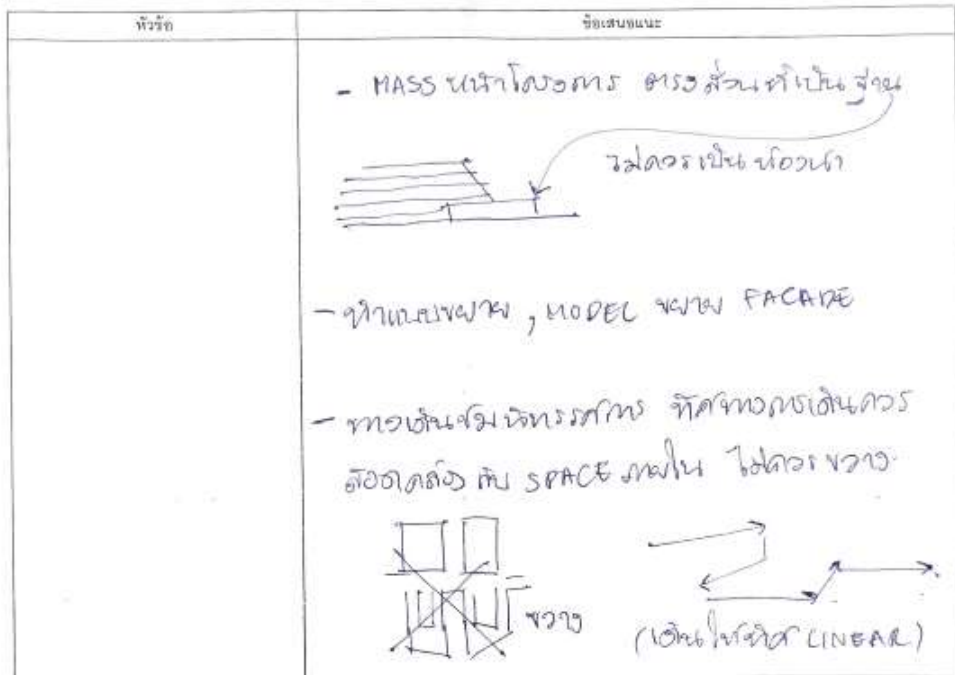 หัวข้อ
ข้อเสนอแนะ
- MASS หน้าโครงการ ตรงส่วนที่เป็นฐาน
ไม่ควรเป็นห้องน้ำ
- ทำแบบขยาย, MODEL ขยาย FACADE
- ทางเดินชมนิทรรศการ ทิศทางการเดินควร
สอดคล้อง กับ SPACE ภายใน ไม่ควรขวาง
ขวาง
(เดินในทิศ LINEAR)